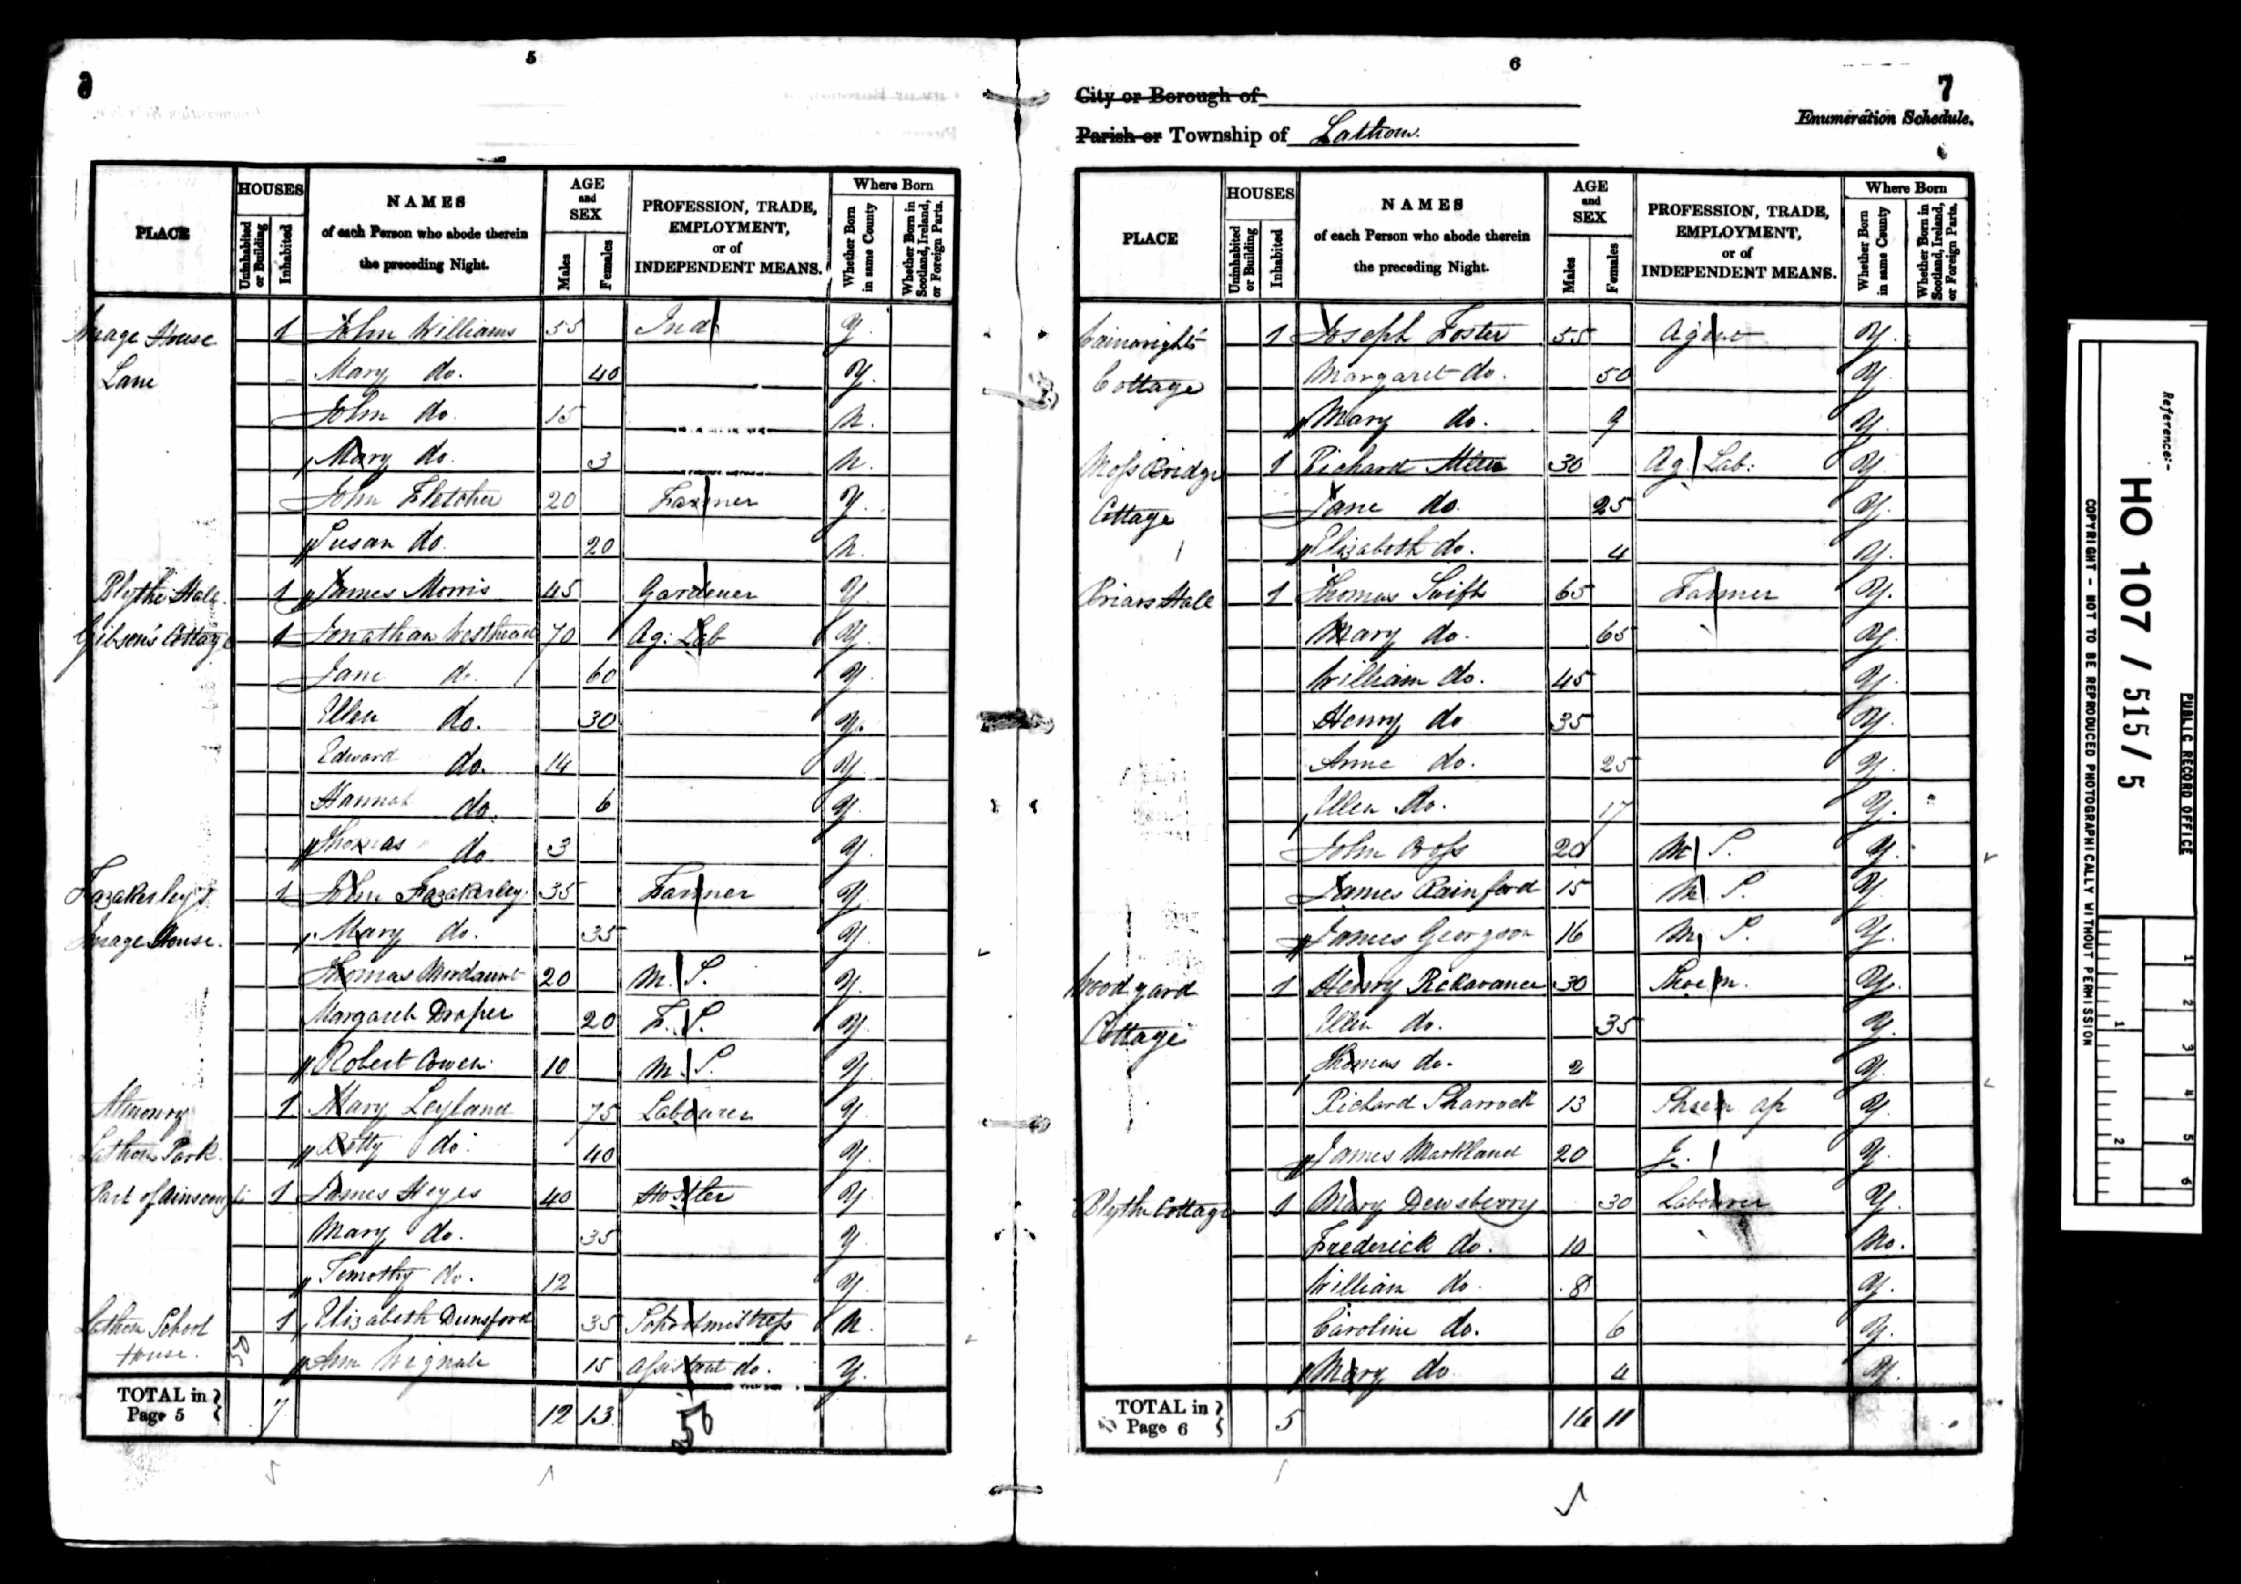 5
6
PLACE
HOUSES
Uninhabited or Building
Inhabited
NAMES
of each Person who abode therein
the preceding Night.
AGE
and
SEX
Males
Females
PROFESSION, TRADE,
EMPLOYMENT,
or of
INDEPENDENT MEANS.
Where Born
Whether Born in same County
Whether Born in Scotland, Ireland, or Foreign Parts.
Image House 1 John Williams 55 Ind Y.
Lane Mary do. 40 Y.
John do. 15 N.
Mary do. 3 N.
John Fletcher 20 Farmer Y.
Susan do. 20 N.
Blythe Hall. 1 James Morris 45 Gardener Y.
Gibson's Cottage 1 Jonathan Westhead 70 Ag: Lab Y.
Jane do. 60 Y.
Ellen do. 30 Y.
Edward do. 14 Y.
Hannah do. 6 Y.
Thomas do 3 Y.
Fazakerley's 1 John Fazakerley. 35 Farmer Y.
Image House. Mary do. 35 Y.
Thomas Mordaunt 20 M. S. Y.
Margaret Draper 20 F. S. Y.
Robert Cowen 10 M. S. Y.
Almonry 1 Mary Leyland 75 Labourer Y.
Lathom Park. Betty do. 40 Y.
Part of Ainscough 1 James Heyes 40 Hostler Y.
Mary do. 35 Y.
Timothy do. 12 Y.
Lathom School 1 Elizabeth Dunsford 35 Schoolmistress N.
House. 50 Ann Wignall 15 Assistant do. Y.
TOTAL in
Page 5 7 12 13 50
6
7
City or Borough of
Enumeration Schedule.
Parish or Township of Lathom.
PLACE
HOUSES
Uninhabited or Building
Inhabited
NAMES
of each Person who abode therein
the preceding Night.
AGE
and
SEX
Males
Females
PROFESSION, TRADE,
EMPLOYMENT,
or of
INDEPENDENT MEANS.
Where Born
Whether Born in same County
Whether Born in Scotland, Ireland, or Foreign Parts.
Wainwright's 1 Joseph Foster 55 Agent Y.
Cottage Margaret do. 50 Y.
Mary do. 9 Y.
Moss Bridge 1 Richard 30 Ag. Lab: Y
Cottage Jane do. 25 Y.
Elizabeth do. 4 Y.
Briars Hall 1 Thomas Swift 65 Farmer Y.
Mary do. 65 Y.
William do. 45 Y.
Henry do 35 Y.
Anne do. 25 Y.
Ellen do. 17 Y.
John Cross 20 M. S. Y.
James Rainford 15 M. S. Y.
James Georgson 16 M. S. Y.
Wood yard 1 Henry Rickavance 30 Shoe m. Y.
Cottage Ellen do. 35 Y.
Thomas do. 2 Y.
Richard Sharrock 13 Shoem ap Y.
James Markland 20 J. Y.
Blythe Cottage 1 Mary Dewsberry 30 Labourer Y.
Frederick do. 10 No.
William do. 8 Y.
Caroline do. 6 Y.
Mary do 4 Y.
TOTAL in
Page 6 5 14 11
Reference:-
HO 107 / 515 / 5
PUBLIC RECORD OFFICE
COPYRIGHT - NOT TO BE REPRODUCED PHOTOGRAPHICALLY WITHOUT PERMISSION
1
2
3
4
5
6
1
2